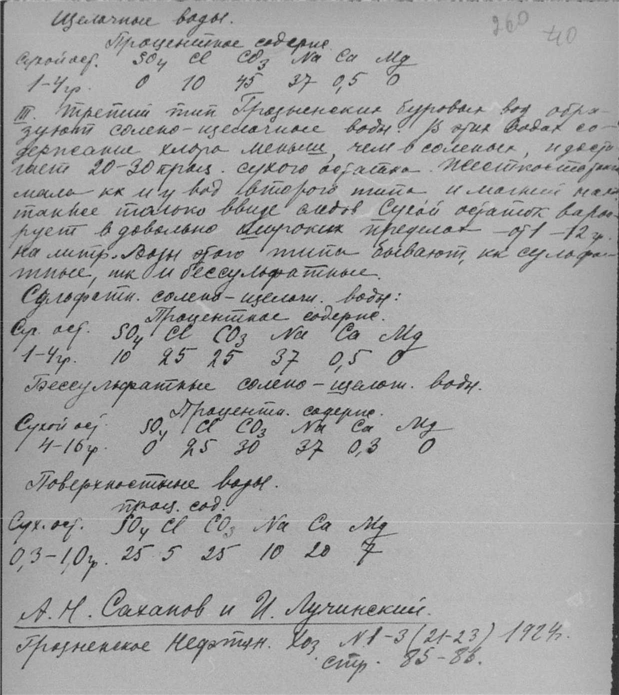 Щелочные воды.
260
40
Процентное содерж.
Сухой ост. SO4 Cl CO3 Na Ca Mg
1-4гр. 0 10 45 37 0,5 0
III. Третий тип Грозненских буровых вод обра-
зуют солено-щелочные воды. В этих водах со-
держание хлора меньше, чем в соленых, и дости
гает 20-30 проц. сухого остатка. Жесткость
мала кк и у вод второго типа и магний
также только ввиде следов Сухой остаток варьи
рует в довольно широких пределах - от 1-12 гр.
на литр. Воды этого типа бывают, кк сульфа-
тные, тк и бессульфатные.
Сульфатн. солено-щелочн. воды:
Процентное содерж.
Сух. ост. SO4 Cl CO3 Na Ca Mg
1-4гр. 10 25 25 37 0,5 0
Бессульфатные солено-щелоч. воды.
Процентн. содерж.
Сухой ост. SO4 Cl CO3 Na Ca Mg
4-16гр. 0 25 30 37 0,3 0
Поверхностные воды.
проц. сод.
Сух. ост. SO4 Cl CO3 Na Ca Mg
0,3-1,0гр. 25 5 25 10 20 7
А. Н. Саханов и И. Лучинский.
Грозненское Нефтян. Хоз N1-3 (21-23) 1924г.
стр. 85-86.